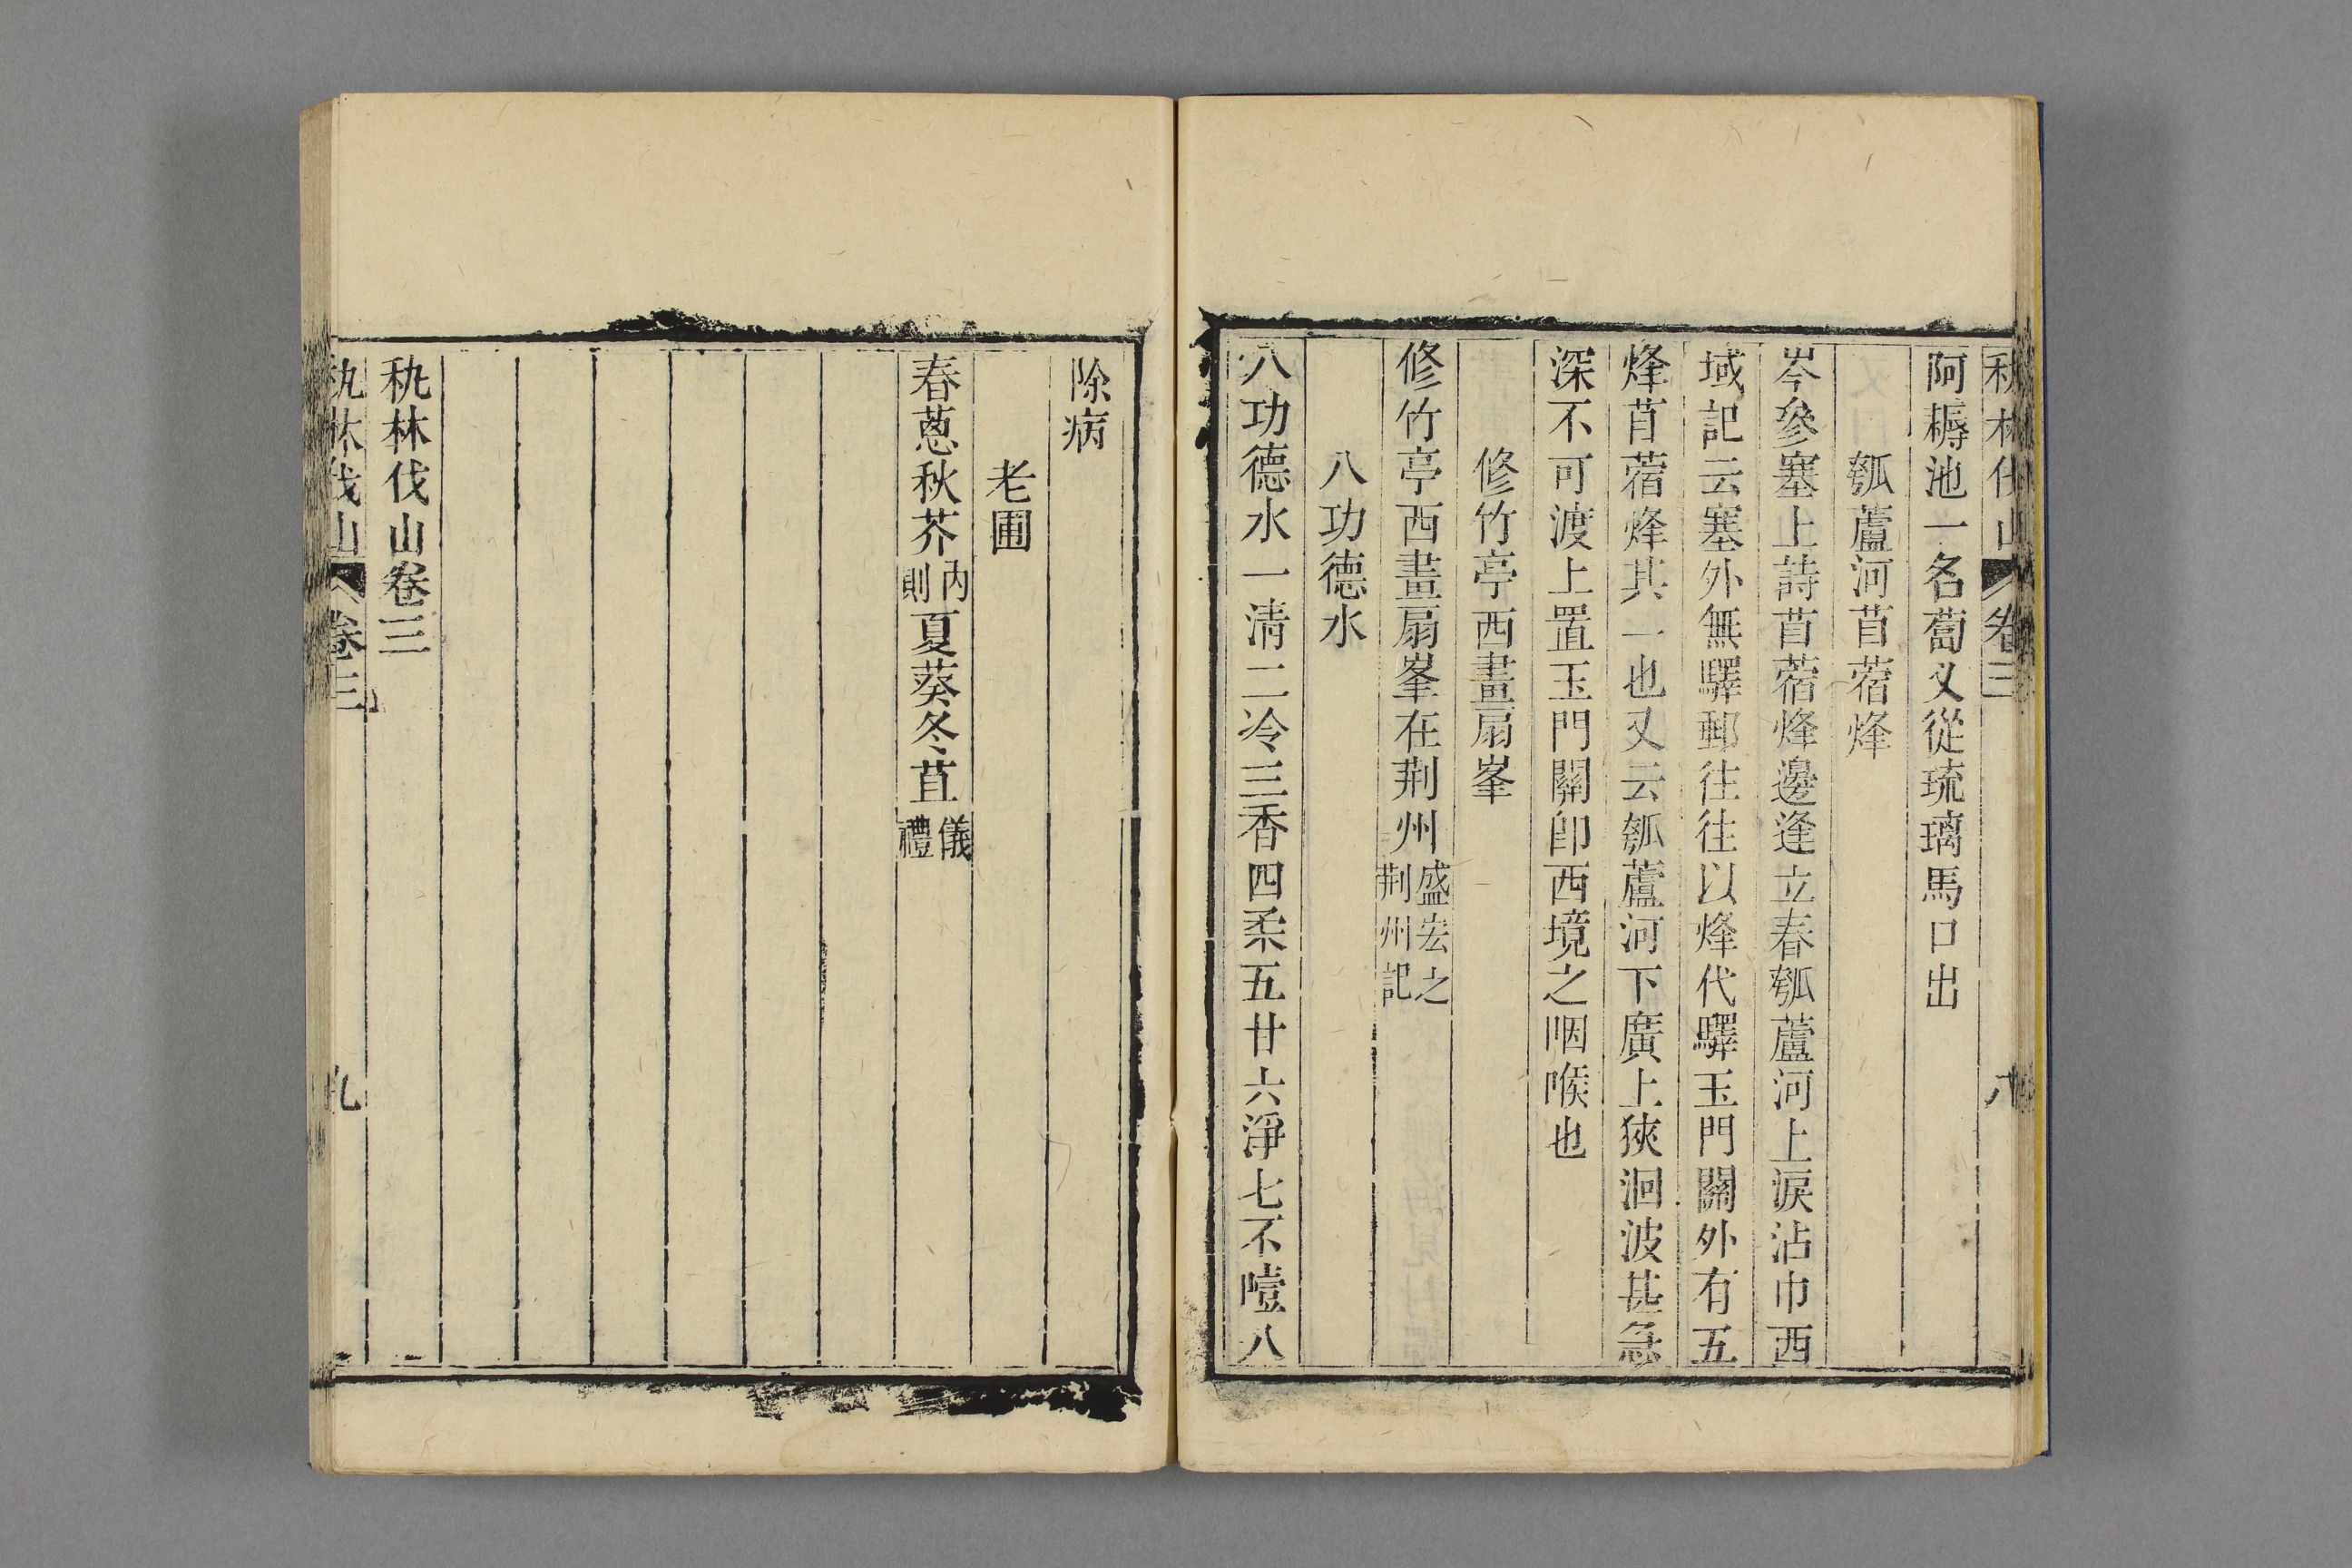 秇林伐山 卷三 八
阿耨池一名蔔㕛從琉璃馬口出
瓠蘆河苜蓿烽
岑參塞上詩苜蓿烽邊逢立春瓠蘆河上淚沾巾西
域記云塞外無驛郵往往以烽代驛玉門關外有五
烽苜蓿烽其一也又云瓠蘆河下廣上狹洄波甚急
深不可渡上置玉門關卽西境之咽喉也
修竹亭西畫扇峯
修竹亭西畫扇峯在荆州盛宏之荆州記
八功德水
八功德水一清二冷三香四柔五甘六淨七不噎八
除病
老圃
春蔥秋芥內則夏葵冬苴儀禮
秇林伐山卷三
秇林伐山 卷三 九